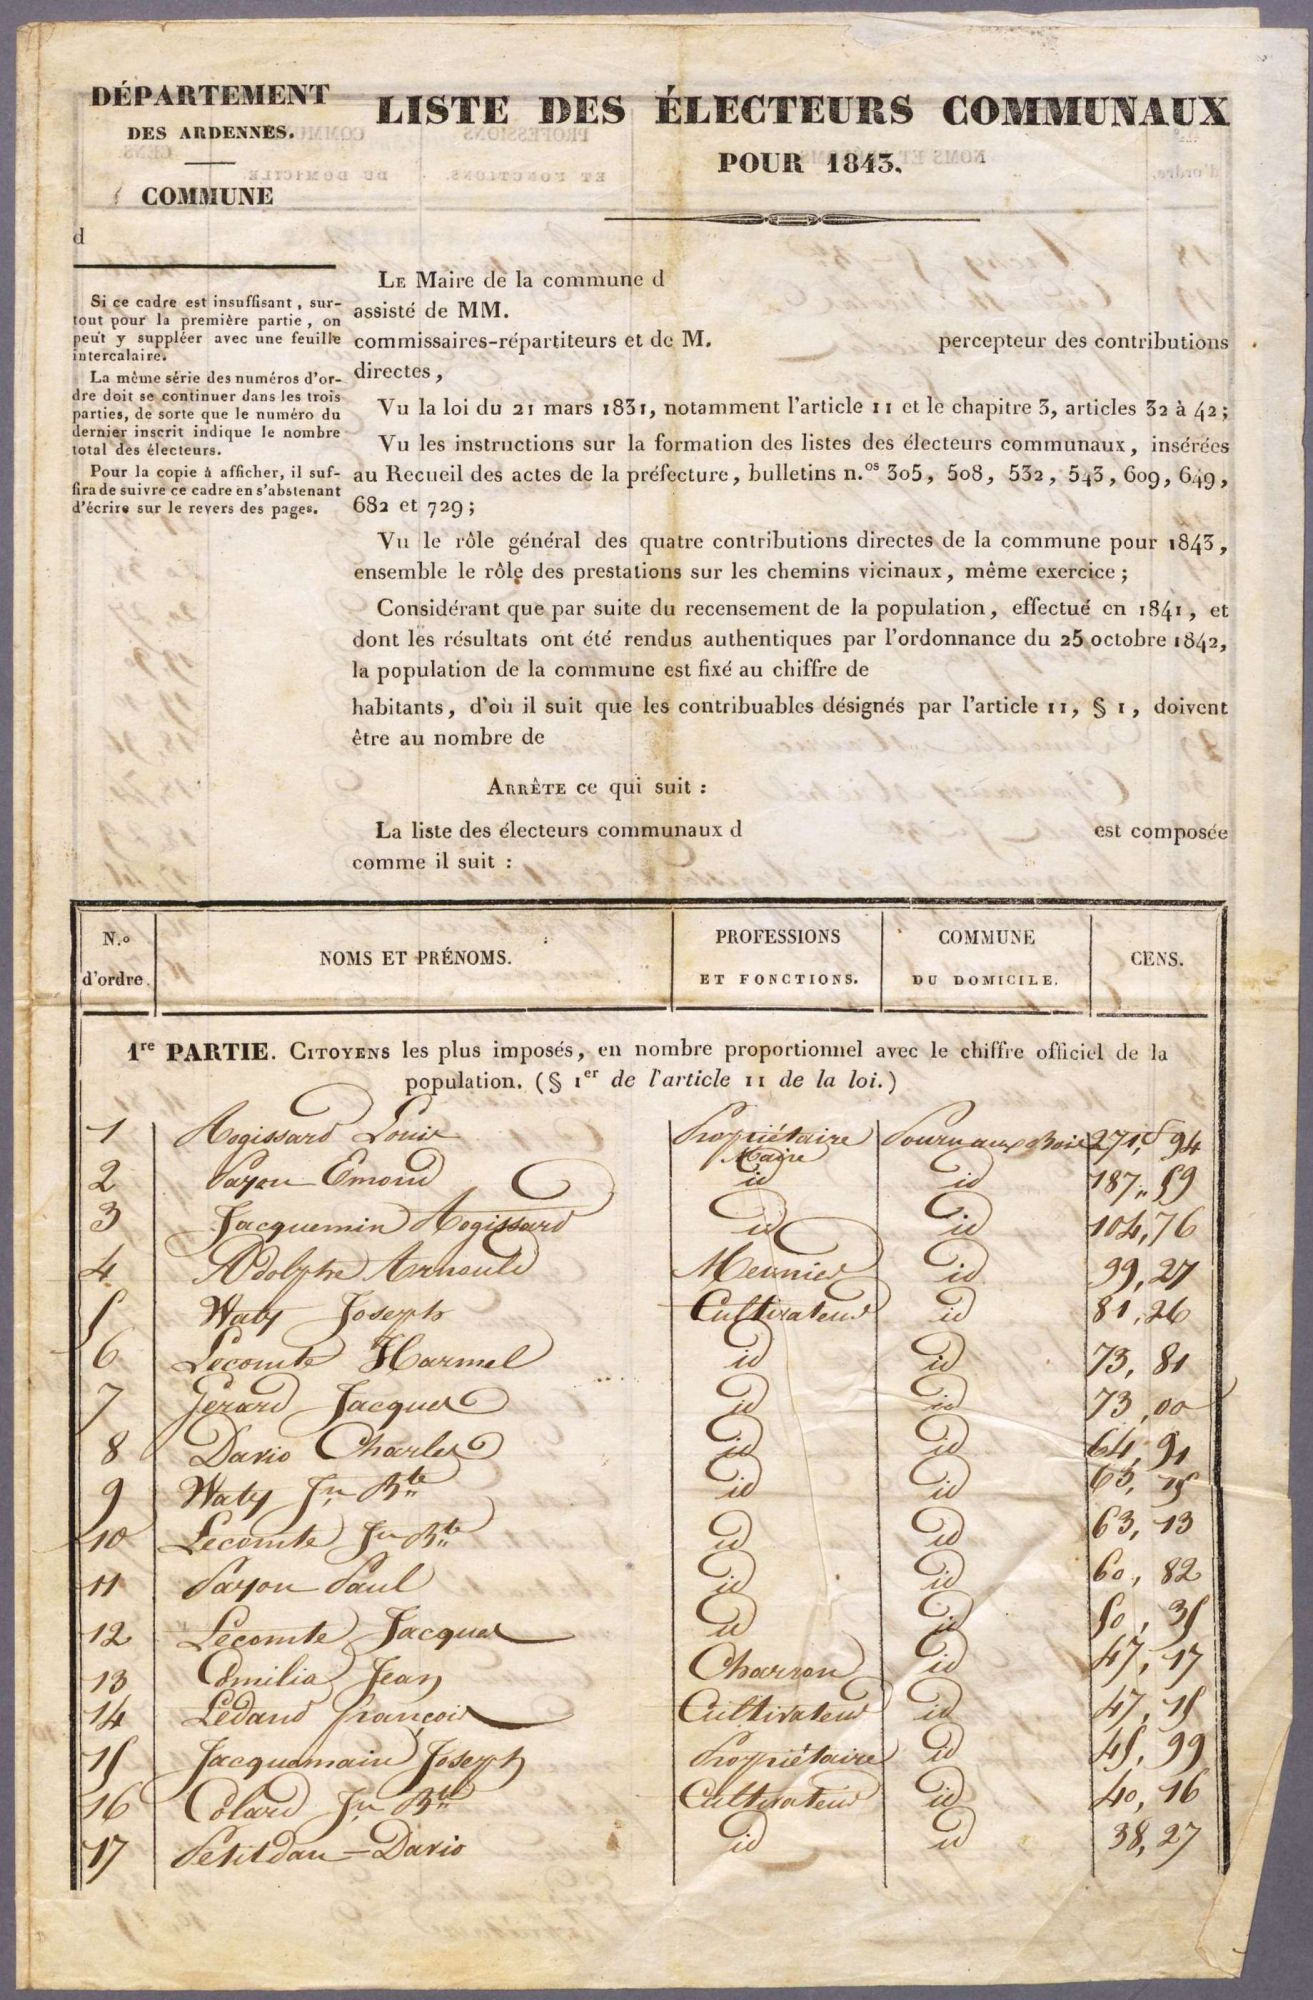 DÉPARTEMENT
DES ARDENNES.
COMMUNE
d
Si ce cadre est insuffisant, sur-
tout pour la première partie, on
peut y suppléer avec une feuille
intercalaire.
La même série des numéros d'or-
dre doit se continuer dans les trois
parties, de sorte que le numéro du
dernier inscrit indique le nombre
total des électeurs.
Pour la copie à afficher, il suf-
fira de suivre ce cadre en s'abstenant
d'écrire sur le revers des pages.
LISTE DES ÉLECTEURS COMMUNAUX
POUR 1843.
LE Maire de la commune d
assisté de MM.
commissaires-répartiteurs et de M. percepteur des contributions
directes,
Vu la loi du 21 mars 1831, notamment l'article 11 et le chapitre 3, articles 32 à 42;
Vu les instructions sur la formation des listes des électeurs communaux, insérées
au Recueil des actes de la préfecture, bulletins n.os 305, 508, 532, 543, 609, 649,
682 et 729;
Vu le rôle général des quatre contributions directes de la commune pour 1843,
ensemble le rôle des prestations sur les chemins vicinaux, même exercice;
Considérant que par suite du recensement de la population, effectué en 1841, et
dont les résultats ont été rendus authentiques par l'ordonnance du 25 octobre 1842,
la population de la commune est fixé au chiffre de
habitants, d'où il suit que les contribuables désignés par l'article 11, § 1, doivent
être au nombre de
ARRÊTE ce qui suit :
La liste des électeurs communaux d est composée
comme il suit :
N.o d'ordre. NOMS ET PRÉNOMS. PROFESSIONS ET FONCTIONS. COMMUNE DU DOMICILE. CENS.
1re PARTIE. CITOYENS les plus imposés, en nombre proportionnel avec le chiffre officiel de la
population. (§ 1er de l'article 11 de la loi.)
1 Rogissard Louis Propriétaire Maire Pournaux Bois 271,f 94
2 Payon Emond id id 187,, 59
3 Jacquemin Rogissard id id 104,76
4 Adolphe Arnould Meunier id 99,27
5 Waty Joseph Cultivateur id 81,26
6 Lecomte Harmel id id 73,81
7 Gérard Jacques id id 73,00
8 Dario Charles id id 64,91
9 Waty Jn Bte id id 63,15
10 Lecomte Jn Bte id id 63,13
11 Payon Paul id id 60,82
12 Lecomte Jacques id id 50,35
13 Emilia Jean Charron id 47,17
14 Ledand françois Cultivateur id 47,15
15 Jacquemain Joseph Propriétaire id 45,99
16 Colard Jn Bte Cultivateur id 40,16
17 Petitdan - Dario id id 38,27